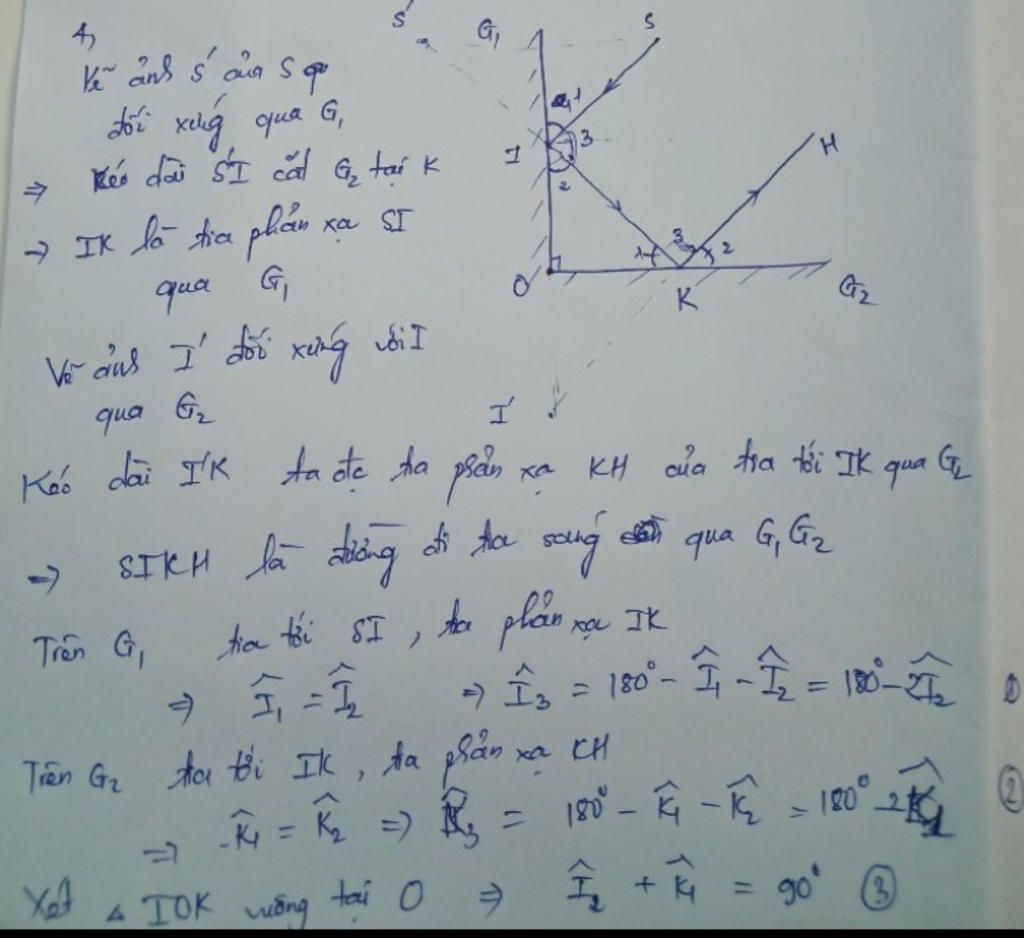 4,
Vẽ ảnh S' của S
đối xứng qua G₁
⇒ Kéo dài S'I cắt G₂ tại K
→ IK là tia phản xạ SI
qua G₁
Vẽ ảnh I' đối xứng với I
qua G₂
S'
G₁
S
1
I
3
2
H
1
3
2
O
K
G₂
I'
Kéo dài I'K ta đc ta phản xạ KH của tia tới IK qua G₂
⇒ SIKH là đường đi ta sáng qua G₁G₂
Trên G₁ tia tới SI, ta phản xạ IK
⇒ Î₁ = Î₂ ⇒ Î₃ = 180° - Î₁ - Î₂ = 180° - 2Î₂ ①
Trên G₂ ta tới IK, ta phản xạ KH
⇒ K̂₁ = K̂₂ ⇒ K̂₃ = 180° - K̂₁ - K̂₂ = 180° - 2K̂₁ ②
Xét △ IOK vuông tại O ⇒ Î₂ + K̂₁ = 90° ③